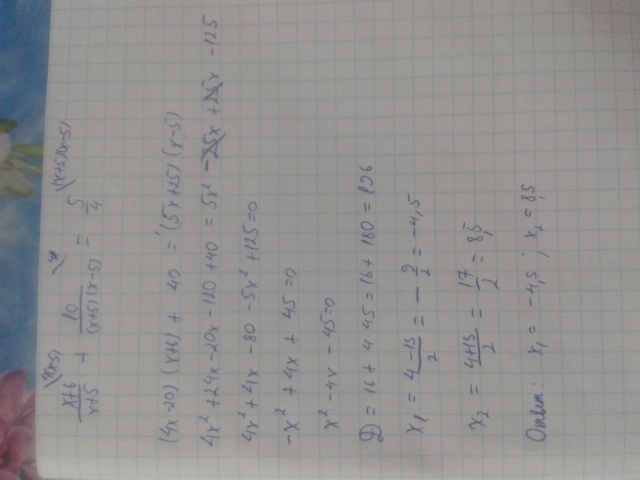 (x+6)/(x+5) \4(x-5) + 10/((x+5)(x-5)) \4 = 5/4 \(x+5)(x-5)
(4x-20)(x+6) + 40 = (5x+25)(x-5)
4x² + 24x - 20x - 120 + 40 = 5x² - 25x + 25x - 125
4x² + 4x - 80 - 5x² + 125 = 0
-x² + 4x + 45 = 0
x² - 4x - 45 = 0
D = 16 + 4·45 = 16 + 180 = 196
x₁ = (4-13)/2 = -9/2 = -4,5
x₂ = (4+13)/2 = 17/2 = 8,5
Ответ: x₁ = -4,5 ; x₂ = 8,5